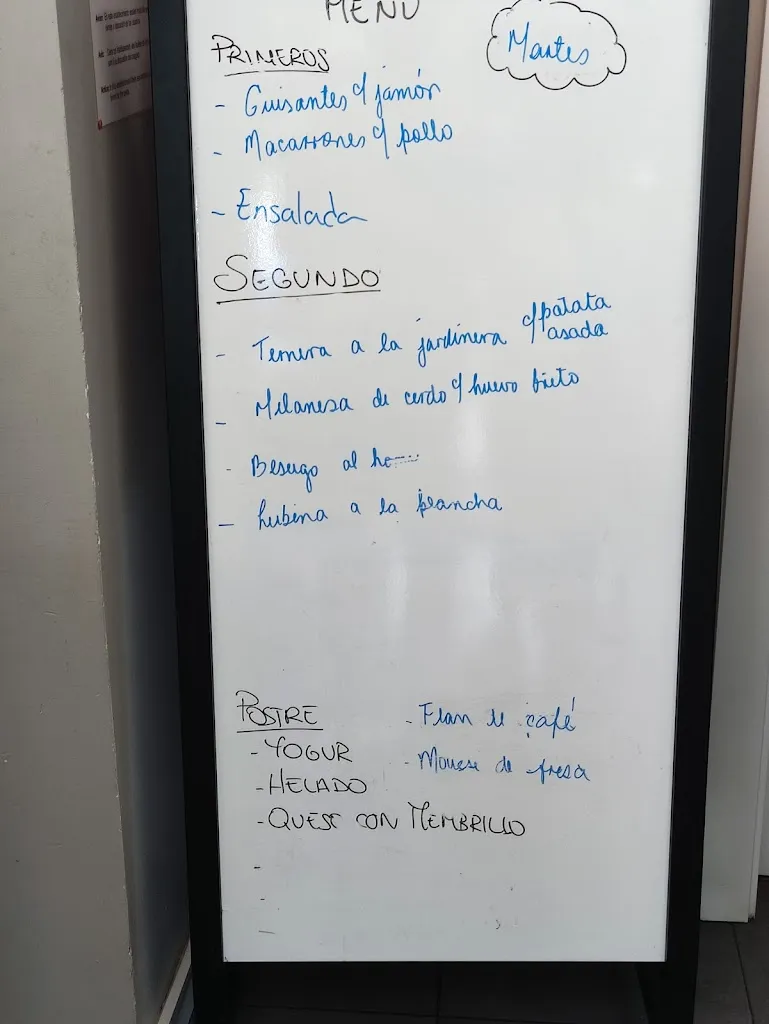 MENÚ
Martes
PRIMEROS
- Guisantes c/ jamón
- Macarrones c/ pollo
- Ensalada
SEGUNDO
- Ternera a la jardinera c/ patata
asada
- Milanesa de cerdo c/ huevo frito
- Besugo al
- Lubina a la plancha
POSTRE
- YOGUR
- HELADO
- QUESO CON MEMBRILLO
- Flan de café
- Mousse de fresa